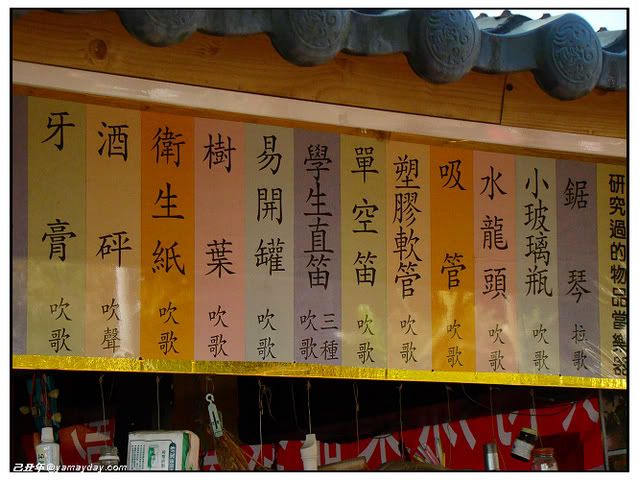 研究過的物品當樂器
鋸琴 拉歌
小玻璃瓶 吹歌
水龍頭 吹歌
吸管 吹歌
塑膠軟管 吹歌
單空笛 吹歌
學生直笛 三種吹歌
易開罐 吹歌
樹葉 吹歌
衛生紙 吹歌
酒砰 吹聲
牙膏 吹歌
己丑年@yamayday.com